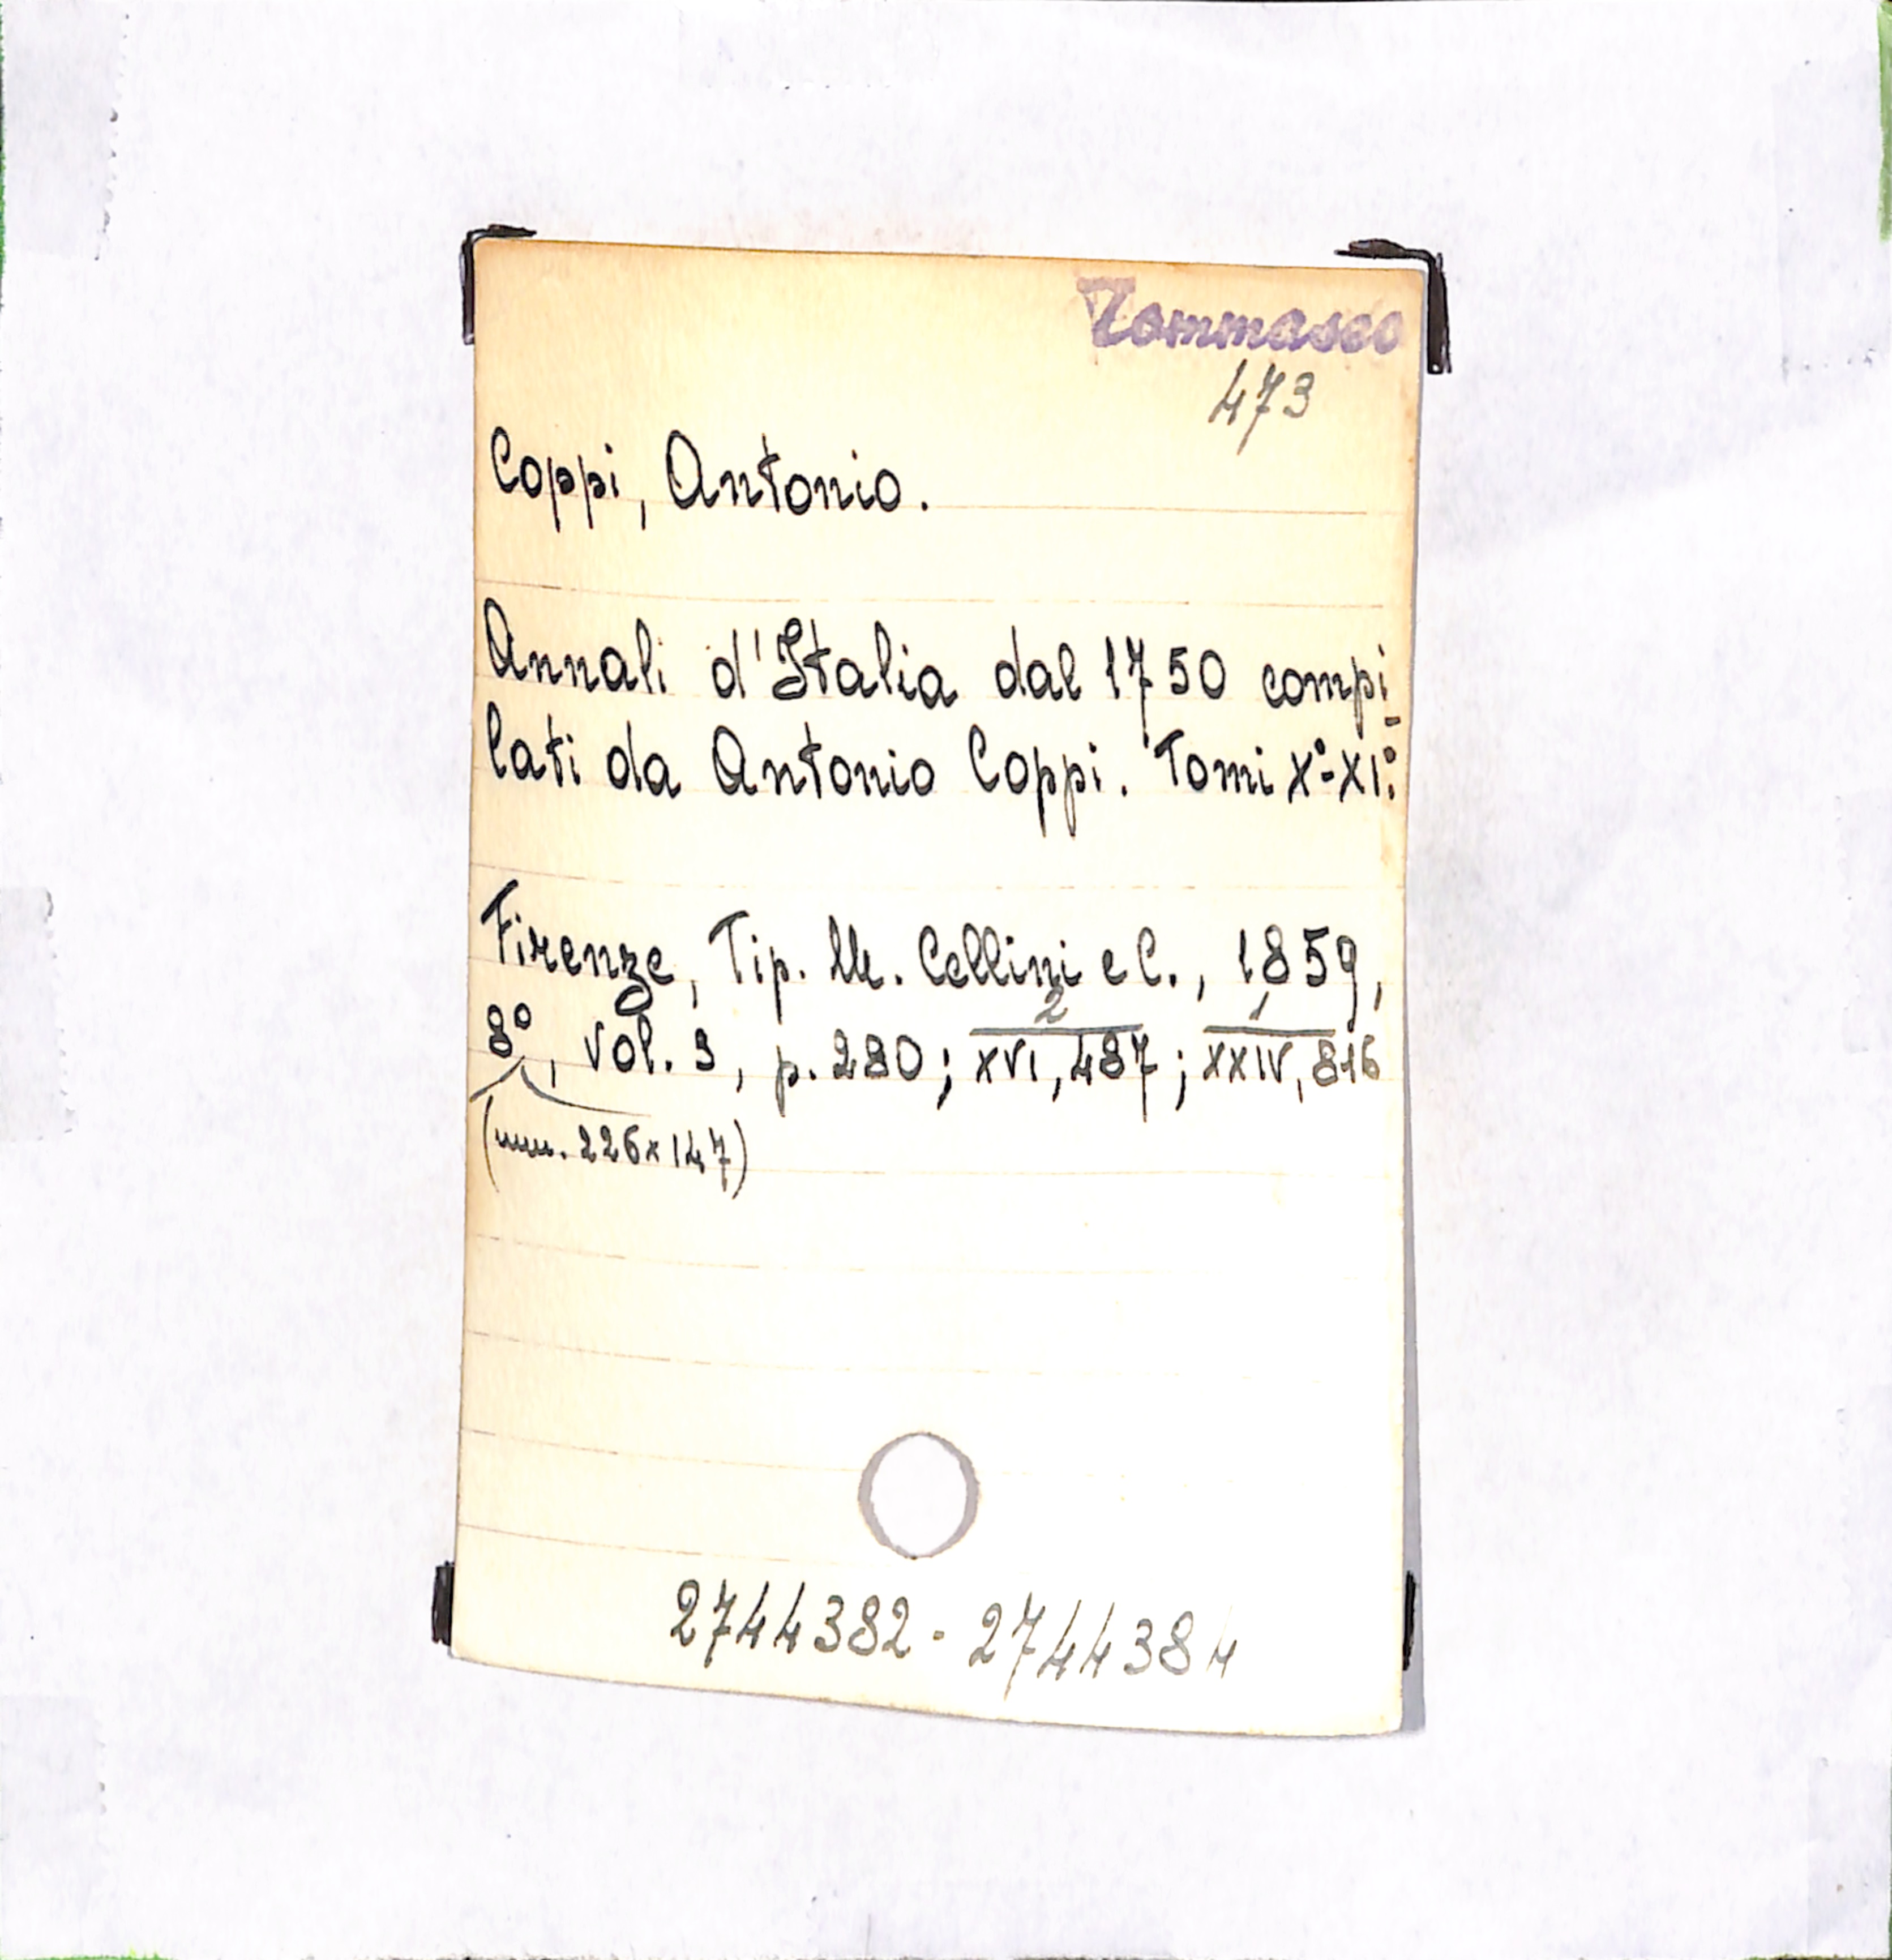 Tommaseo
473
Coppi, Antonio.
Annali d'Italia dal 1750 compi-
lati da Antonio Coppi. Tomi X°-XI°.
Firenze, Tip. M. Cellini e C., 1859,
2 1
8°, vol. 3, p. 280; XVI, 487; XXIV, 816
(mm. 226x147)
2744382-2744384